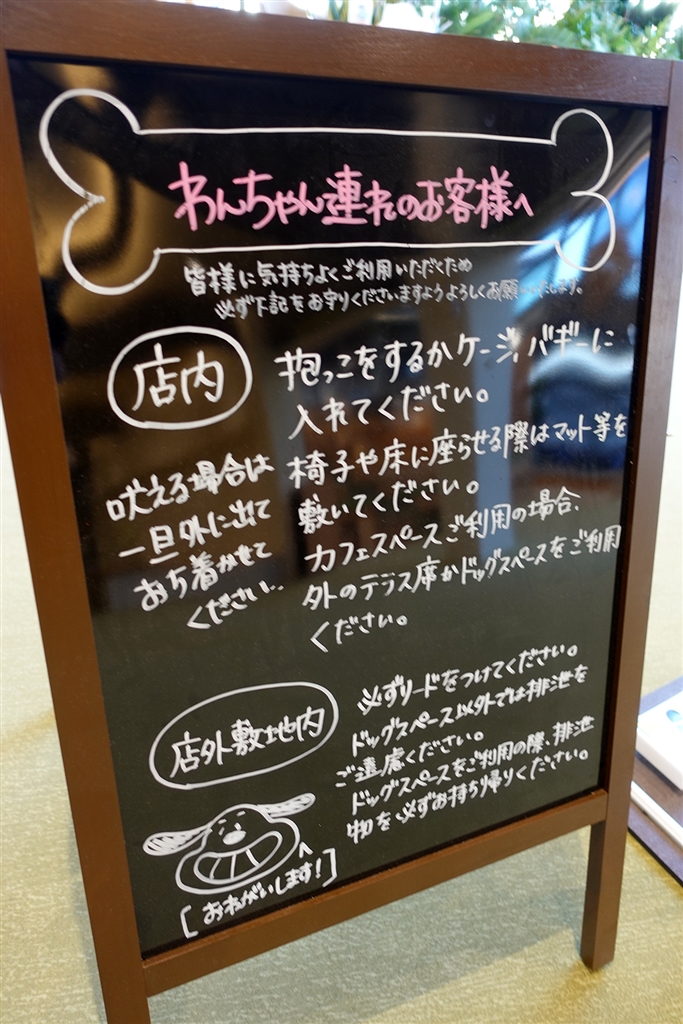 わんちゃん連れのお客様へ
皆様に気持ちよくご利用いただくため
必ず下記をお守りくださいますようよろしくお願いいたします。
店内
抱っこをするかケージ、バギーに
入れてください。
椅子や床に座らせる際はマット等を
敷いてください。
カフェスペースご利用の場合、
外のテラス席かドッグスペースをご利用
ください。
吠える場合は
一旦外に出て
おち着かせて
ください..
店外敷地内
必ずリードをつけてください。
ドッグスペース以外では排泄を
ご遠慮ください。
ドッグスペースをご利用の際、排泄
物を必ずお持ち帰りください。
[おねがいします!]